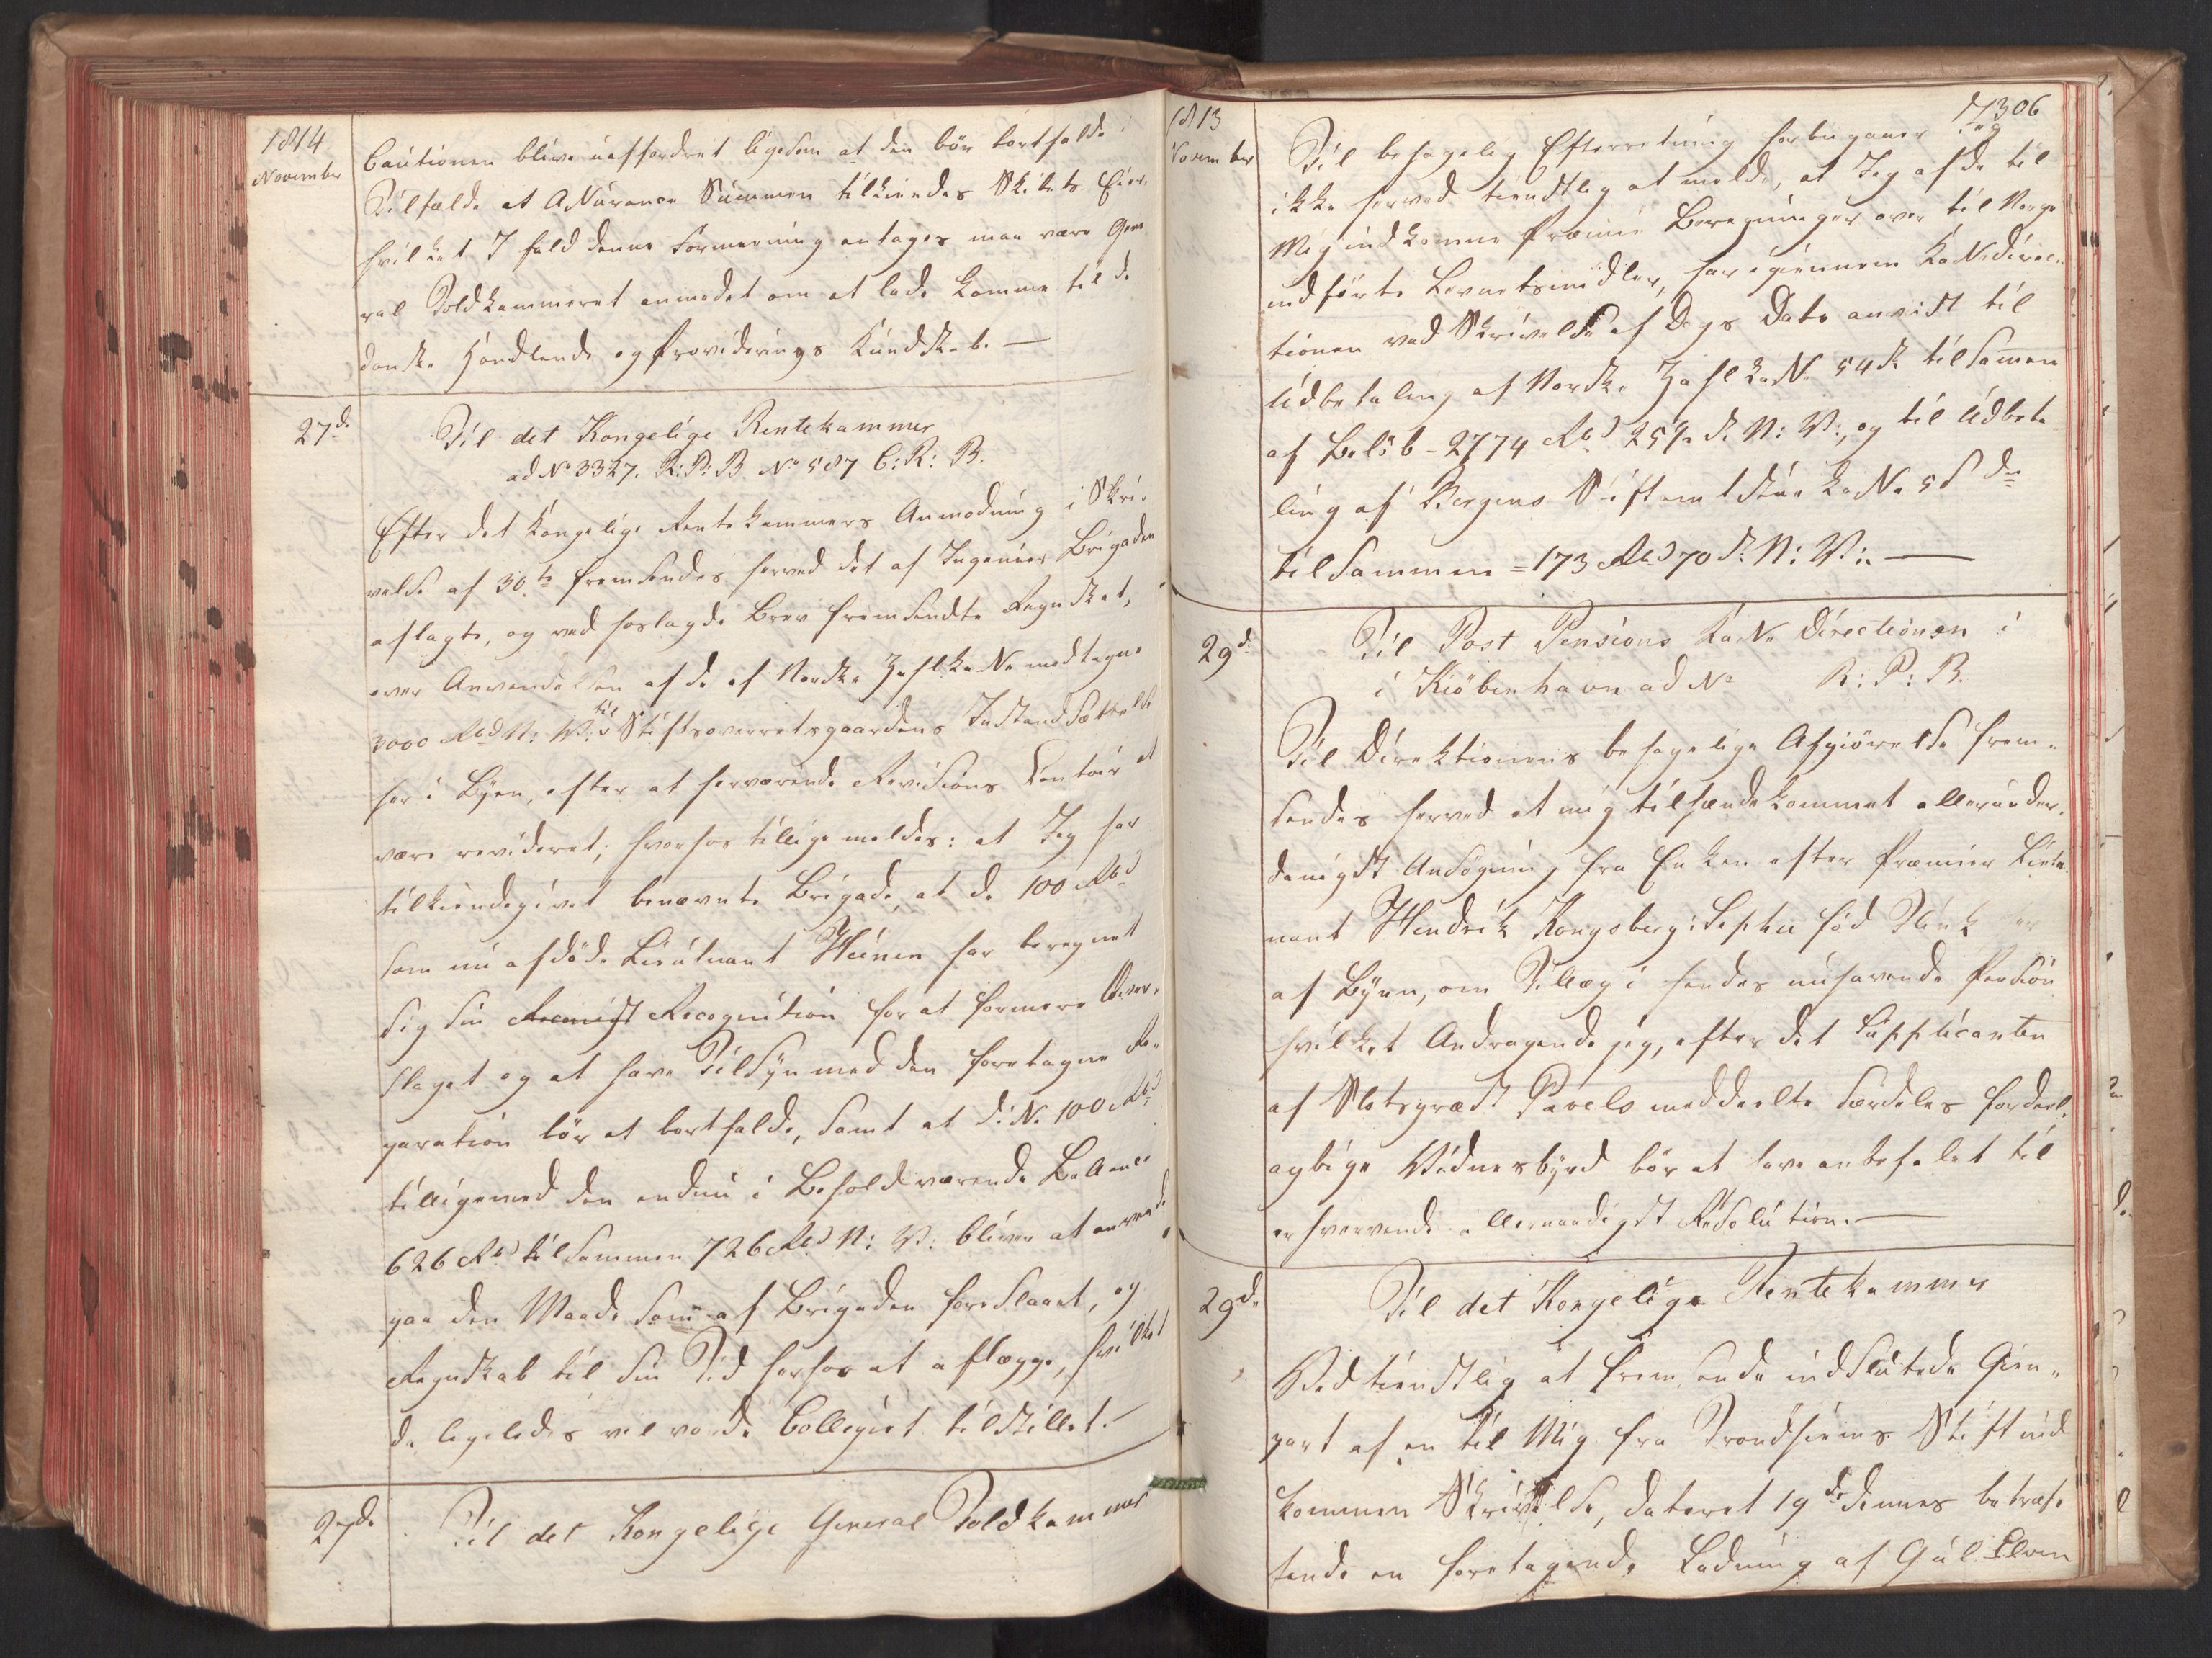 1814
November
Cautionen blive uaffordret ligesom at den bør bortfalde i
Tilfælde at Assurance Summen tilkiendes Skibets Eier.
hvilket I fald denne Formening antages maa være Gene
ral Toldkammeret anmodet om at lade komme til de
danske Handlende og Provideringers Kundskab. —
27d.
Til det Kongelige Rentekammer
ad No 3327. R: P: B. No 587 C: R: B.
Efter det Kongelige Rentekammers Anmodning i Skri-
velse af 30te fremsendes herved det af Ingenieur Brigaden
aflagte, og ved hoslagde Brev fremsendte Regnskab,
over Anvendelsen af de af Norske Zahlkasse modtagne
3000 Rbd N: V: til Stiftsoverretsgaardens Istandsættelse
her i Byen, efter at herværende Revisions Contoir at
være revideret; hvorhos tillige meldes: at Jeg har
tilkiendegivet benævnte Brigade, at de 100 Rbd
som nu afdøde Lieutnant Heinen har beregnet
sig sin Recognition for at formere Over-
slaget og at have Tilsyn med den foretagne Re-
paration bør at bortfalde, samt at disse 100 Rbd
tilligemed den endnu i Behold værende Ballance
626 Rbd tilsammen 726 Rbd N: V: bliver at anvende
paa den Maade som af Brigaden foreslaaet, og
Regnskab til sin Tid herfor at aflægge, hvilket
da ligeledes vil vorde Collegiet tilstillet. —
27d.
Til det Kongelige General Toldkammer
1813
November
306
Til behagelig Efterretning
ikke herved tienstlig at melde, at Jeg af de til
Mig indkomne Præmie Beregninger over til Norge
indførte Levnetsmidler, har igiennem Kassedirec-
tionen ved Skrivelse af Dags Dato anvist til
Udbetaling af Norske Zahlkasse 54 St. tilsamen
af Beløb - 2774 Rbd 25½ s. N: V:, og til Udbeta
ling af Bergens Stiftamtstue Kasse 5 St do
tilsammen = 173 Rbd 70 s. N: V:. —
29d.
Til Post Pensions Kasse Directionen i
i Kiøbenhavn ad No R: P: B.
Til Direktionens behagelige Afgiørelse frem-
sendes herved et mig tilhændekommet allerunder-
danigst Ansøgning fra Enken efter Premier Lieute
nant Hendrik Kongsberg: Sophie fød Plink her
af Byen, om Tillæg i hendes nuhavende Pension
hvilket Andragende jeg, efter det Supplicantin
af Slotspræst Pavels meddeelte særdeles fordeel-
agtige Vidnesbyrd bør at have anbefalet til
erhvervende allernaadigst Resolution. —
29d.
Til det Kongelige Rentekammer
Ved tienstlig at fremsende indsluttede Gien-
part af en til Mig fra Trondhiems Stift ind
kommen Skrivelse, dateret 19de dennes betræf-
fende en foretagende Ledning af Gul Elven